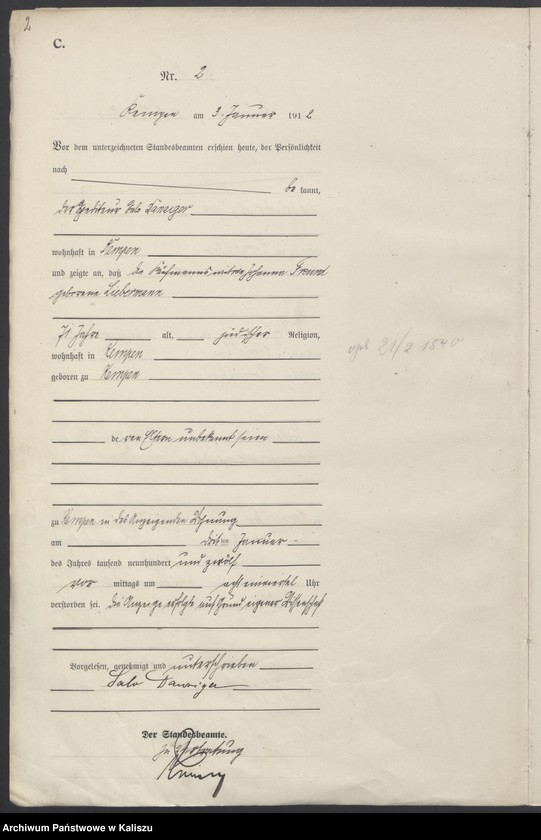 2
C.
Nr. 2
Kempen am 3. Januar 1912
Vor dem unterzeichneten Standesbeamten erschien heute, der Persönlichkeit
nach
be kannt,
der Spediteur Salo Danziger
wohnhaft in Kempen
und zeigte an, daß die Kaufmannswitwe Johanna Freund
geborene Liebermann
71 Jahre alt, jüdischer Religion,
wohnhaft in Kempen
geboren zu Kempen
21/2 1840
deren Eltern unbekannt seien
zu Kempen in des Anzeigenden Wohnung
am dritten Januar
des Jahres tausend neunhundert und zwölf
vor mittags um acht einviertel Uhr
verstorben sei. Die Anzeige erfolgte auf Grund eigener Wissenschaft
Vorgelesen, genehmigt und unterschrieben
Salo Danziger
Der Standesbeamte.
In Vertretung
Archiwum Państwowe w Kaliszu